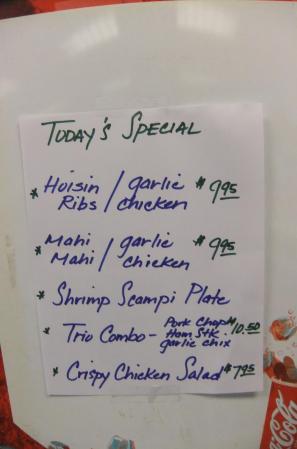 TODAY'S SPECIAL
* Hoisin / garlic $9.95
Ribs / chicken
* Mahi / garlic $9.95
Mahi / chicken
* Shrimp Scampi Plate
* Trio Combo - Pork Chop $10.50
Ham Stk.
garlic chix
* Crispy Chicken Salad $7.95
Coca-Cola